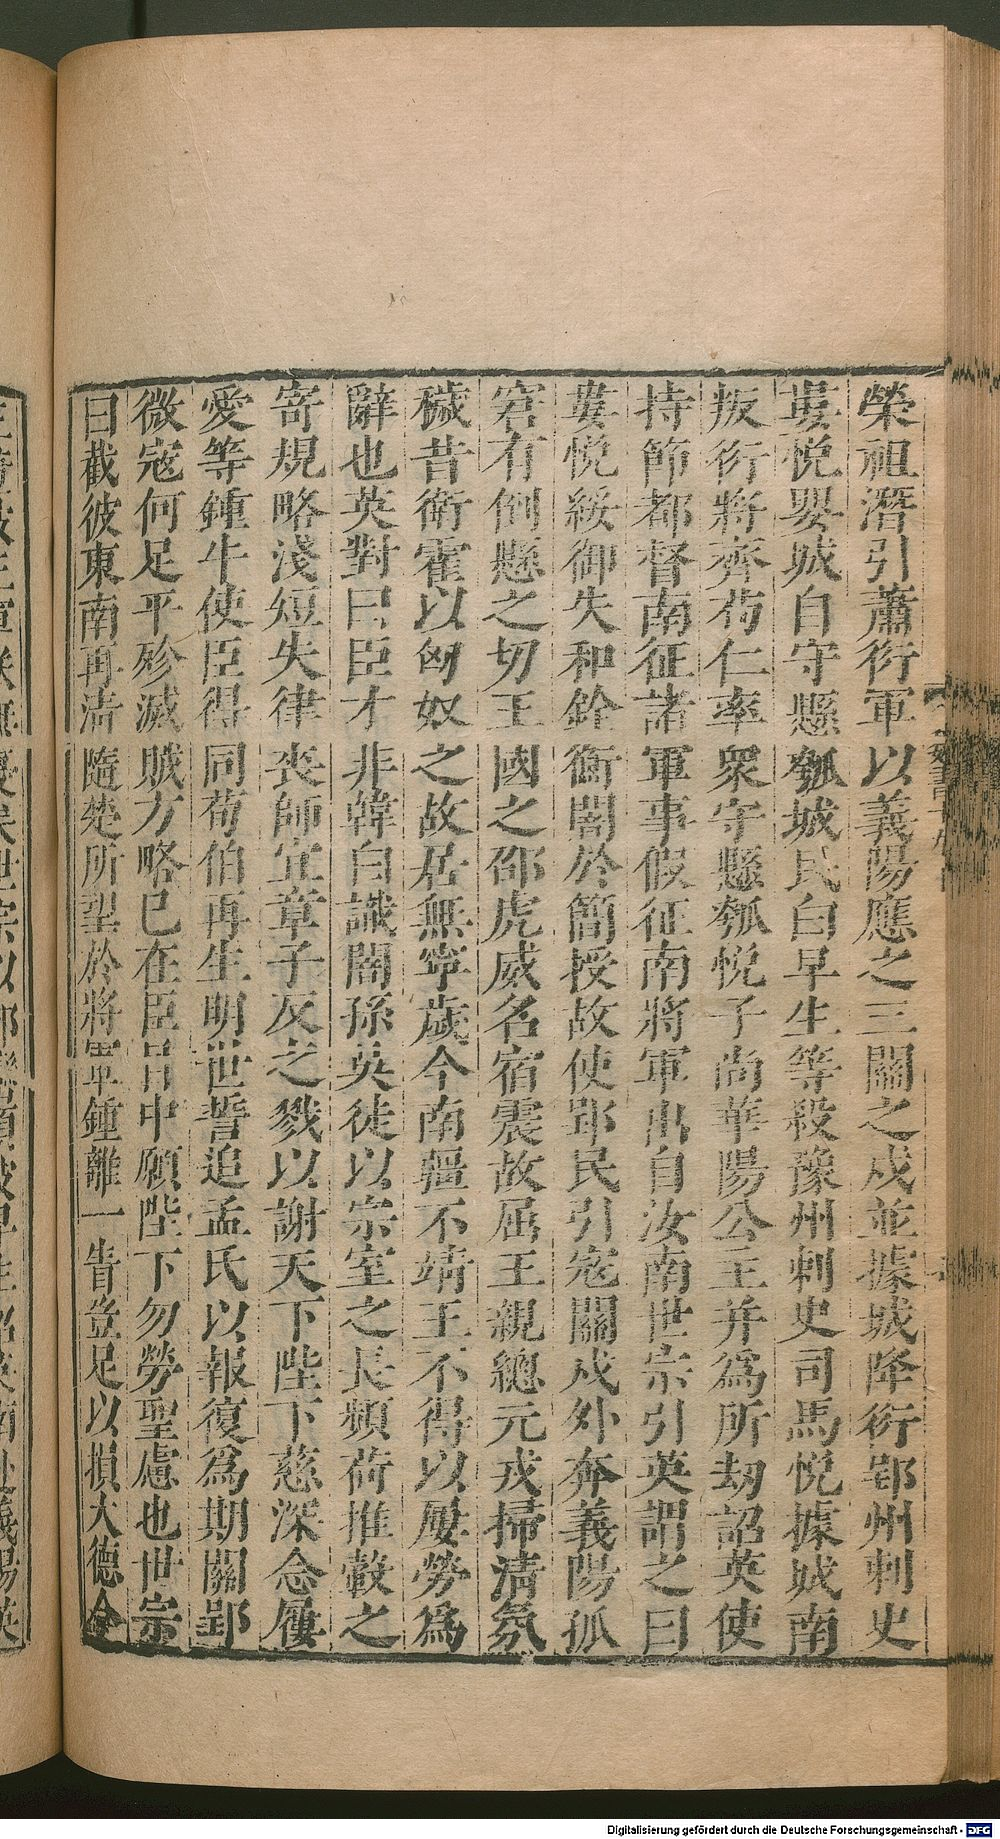 榮祖潛引蕭衍軍以義陽應之三關之戍並據城降衍郢州刺史
婁悅嬰城自守懸瓠城民白早生等殺豫州刺史司馬悅據城南
叛衍將齊苟仁率眾守懸瓠悅子尚華陽公主并為所劫詔英使
持節都督南征諸軍事假征南將軍出自汝南世宗引英謂之曰
婁悅綏御失和銓衡闇於簡授故使郢民引寇關戍外奔義陽孤
窘有倒懸之切王國之邵虎威名宿震故屈王親總元戎掃清氛
穢昔衛霍以匈奴之故居無寧歲今南疆不靖王不得以屢勞為
辭也英對曰臣才非韓白識闇孫英徒以宗室之長頻荷推轂之
寄規略淺短失律喪師宜章子反之戮以謝天下陛下慈深念屨
愛等鍾牛使臣得同荀伯再生明世誓追孟氏以報復為期關郢
微寇何足平殄滅賊方略已在臣目中願陛下勿勞聖慮也世宗
曰截彼東南再清隨楚所望於將軍鍾離一眚豈足以損大德今
Digitalisierung gefördert durch die Deutsche Forschungsgemeinschaft - DFG